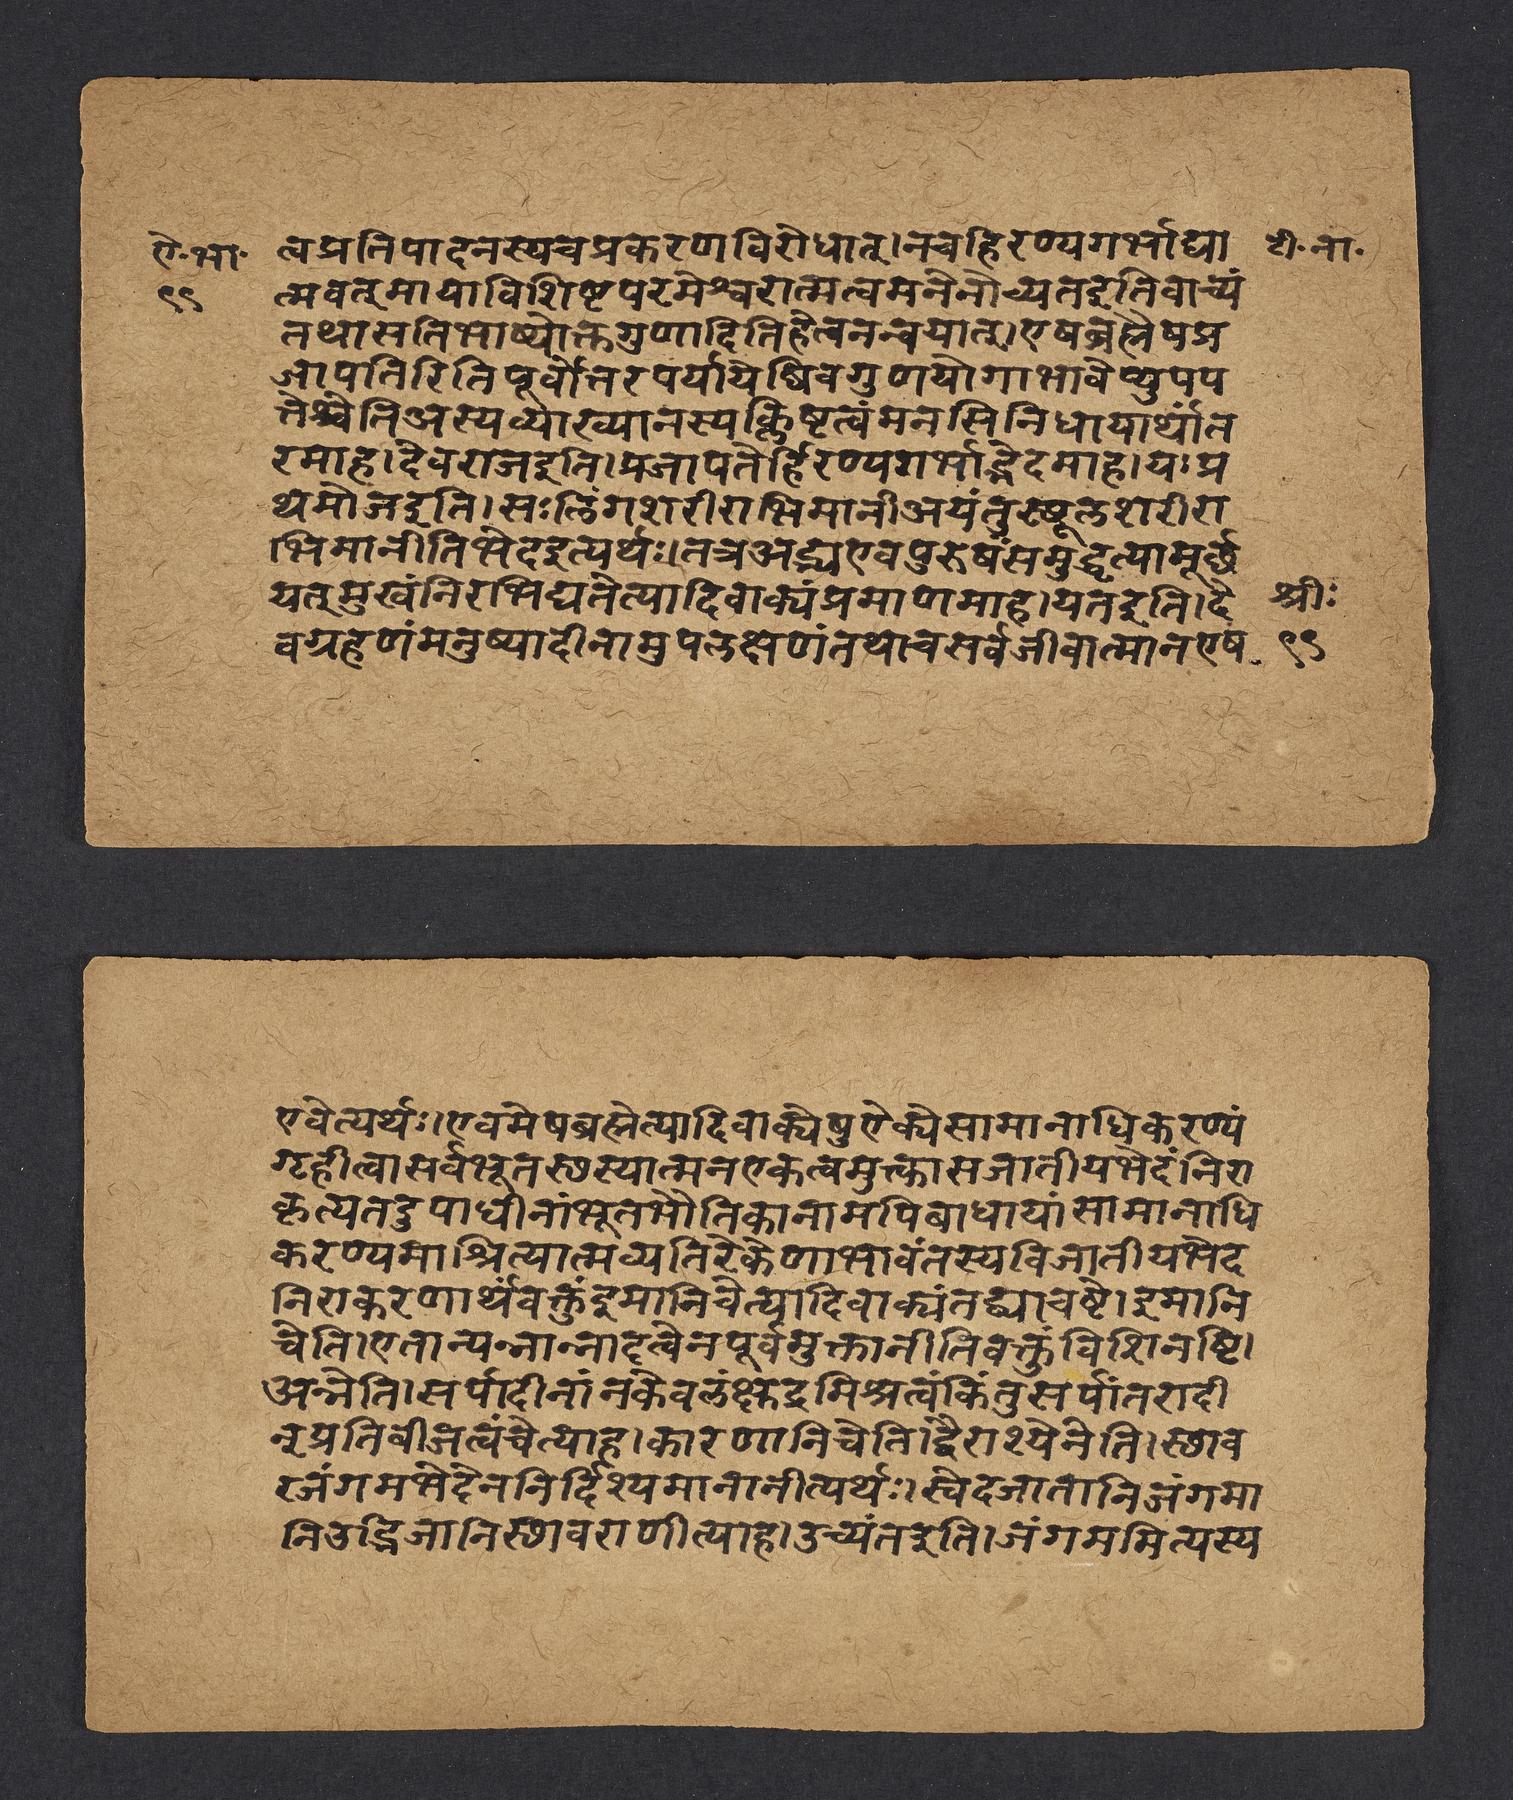 ऐ·भा·
९९
त्वप्रतिपादनस्यचप्रकरणविरोधात्।नचहिरण्यगर्भाद्या
टी·ना·
त्मवत्मायाविशिष्टपरमेश्वरात्मत्वमनेनोच्यतइतिवाच्यं
तथासतिभाष्योक्तगुणादितिहेत्वनन्वयात्।एषब्रह्मैषप्र
जापतिरितिपूर्वोत्तरपर्यायेष्विवगुणयोगाभावेप्युपप
त्तेश्चेतिअस्यव्याख्यानस्यक्लिष्टत्वंमनसिनिधायार्थांत
रमाह।देवराजइति।प्रजापतेर्हिरण्यगर्भाद्भेदमाह।यःप्र
थमोजइति।सःलिंगशरीराभिमानीअयंतुस्थूलशरीरा
भिमानीतिभेदइत्यर्थः।तत्रअद्भ्यएवपुरुषंसमुद्धृत्यामूर्छ
यत्मुखंनिरभिद्यतेत्यादिवाक्यंप्रमाणमाह।यतइति।दे
वग्रहणंमनुष्यादीनामुपलक्षणंतथाचसर्वजीवात्मानएष
श्रीः
९९
एवेत्यर्थः।एवमेषब्रह्मेत्यादिवाक्येषुऐक्येसामानाधिकरण्यं
गृहीत्वासर्वभूतस्थस्यात्मनएकत्वमुक्त्कासजातीयभेदंनिरा
कृत्यतदुपाधीनांभूतभौतिकानामपिबाधायांसामानाधि
करण्यमाश्रित्यात्मव्यतिरेकेणाभावंतस्यविजातीयभेद
निराकरणार्थंवक्तुंइमानिचेत्यादिवाक्यंतद्व्याचष्टे।इमानि
चेति।एतान्यन्नान्नादत्वेनपूर्वमुक्तानीतिवक्तुंविशिनष्टि।
अन्नेति।सर्पादीनांनकेवलंक्षुद्रमिश्रत्वंकिंतुसर्पांतरादी
न्प्रतिबीजत्वंचेत्याह।कारणानिचेति।द्वैराश्येनेति।स्थाव
रजंगमभेदेननिर्दिश्यमानानीत्यर्थः।स्वेदजातानिजंगमा
निउद्भिजानिस्थावराणीत्याह।उच्यंतइति।जंगममित्यस्य